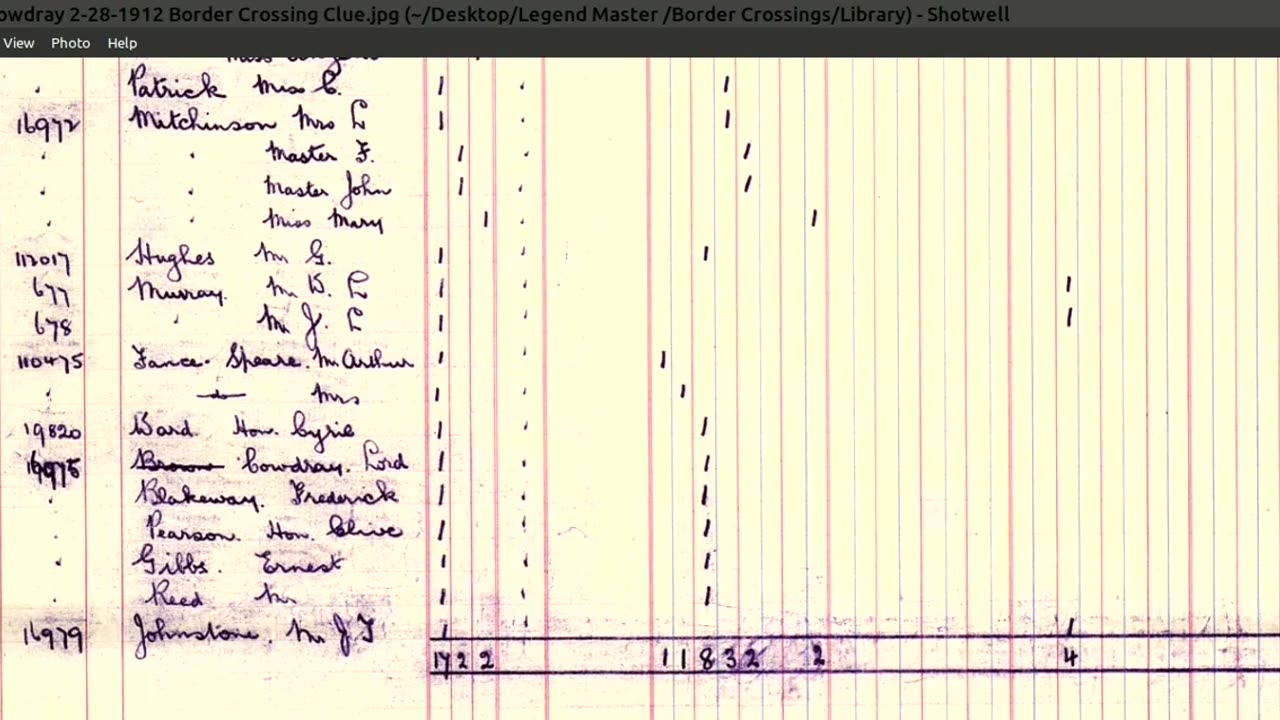 owdray 2-28-1912 Border Crossing Clue.jpg (~/Desktop/Legend Master /Border Crossings/Library) - Shotwell
View Photo Help
Patrick Miss C. 1 1
16972 Mitchinson Mrs L 1 1
Master F. 1 1
Master John 1 1
Miss Mary 1 1
112017 Hughes Mr G. 1 1
677 Murray. Mr D. L 1 1
678 " Mr J. L 1 1
110475 Fance. Speare. Mr Arthur 1 1
do Mrs 1 1
19820 Ward. Hon. Cyril 1 1
16975 Brown Cowdray. Lord 1 1
Blakeway. Frederick 1 1
Pearson. Hon. Clive 1 1
Gibbs. Ernest 1 1
Reed Mr 1 1
16979 Johnstone. Mr J F 1 1
17 2 2 1 1 8 3 2 2 4